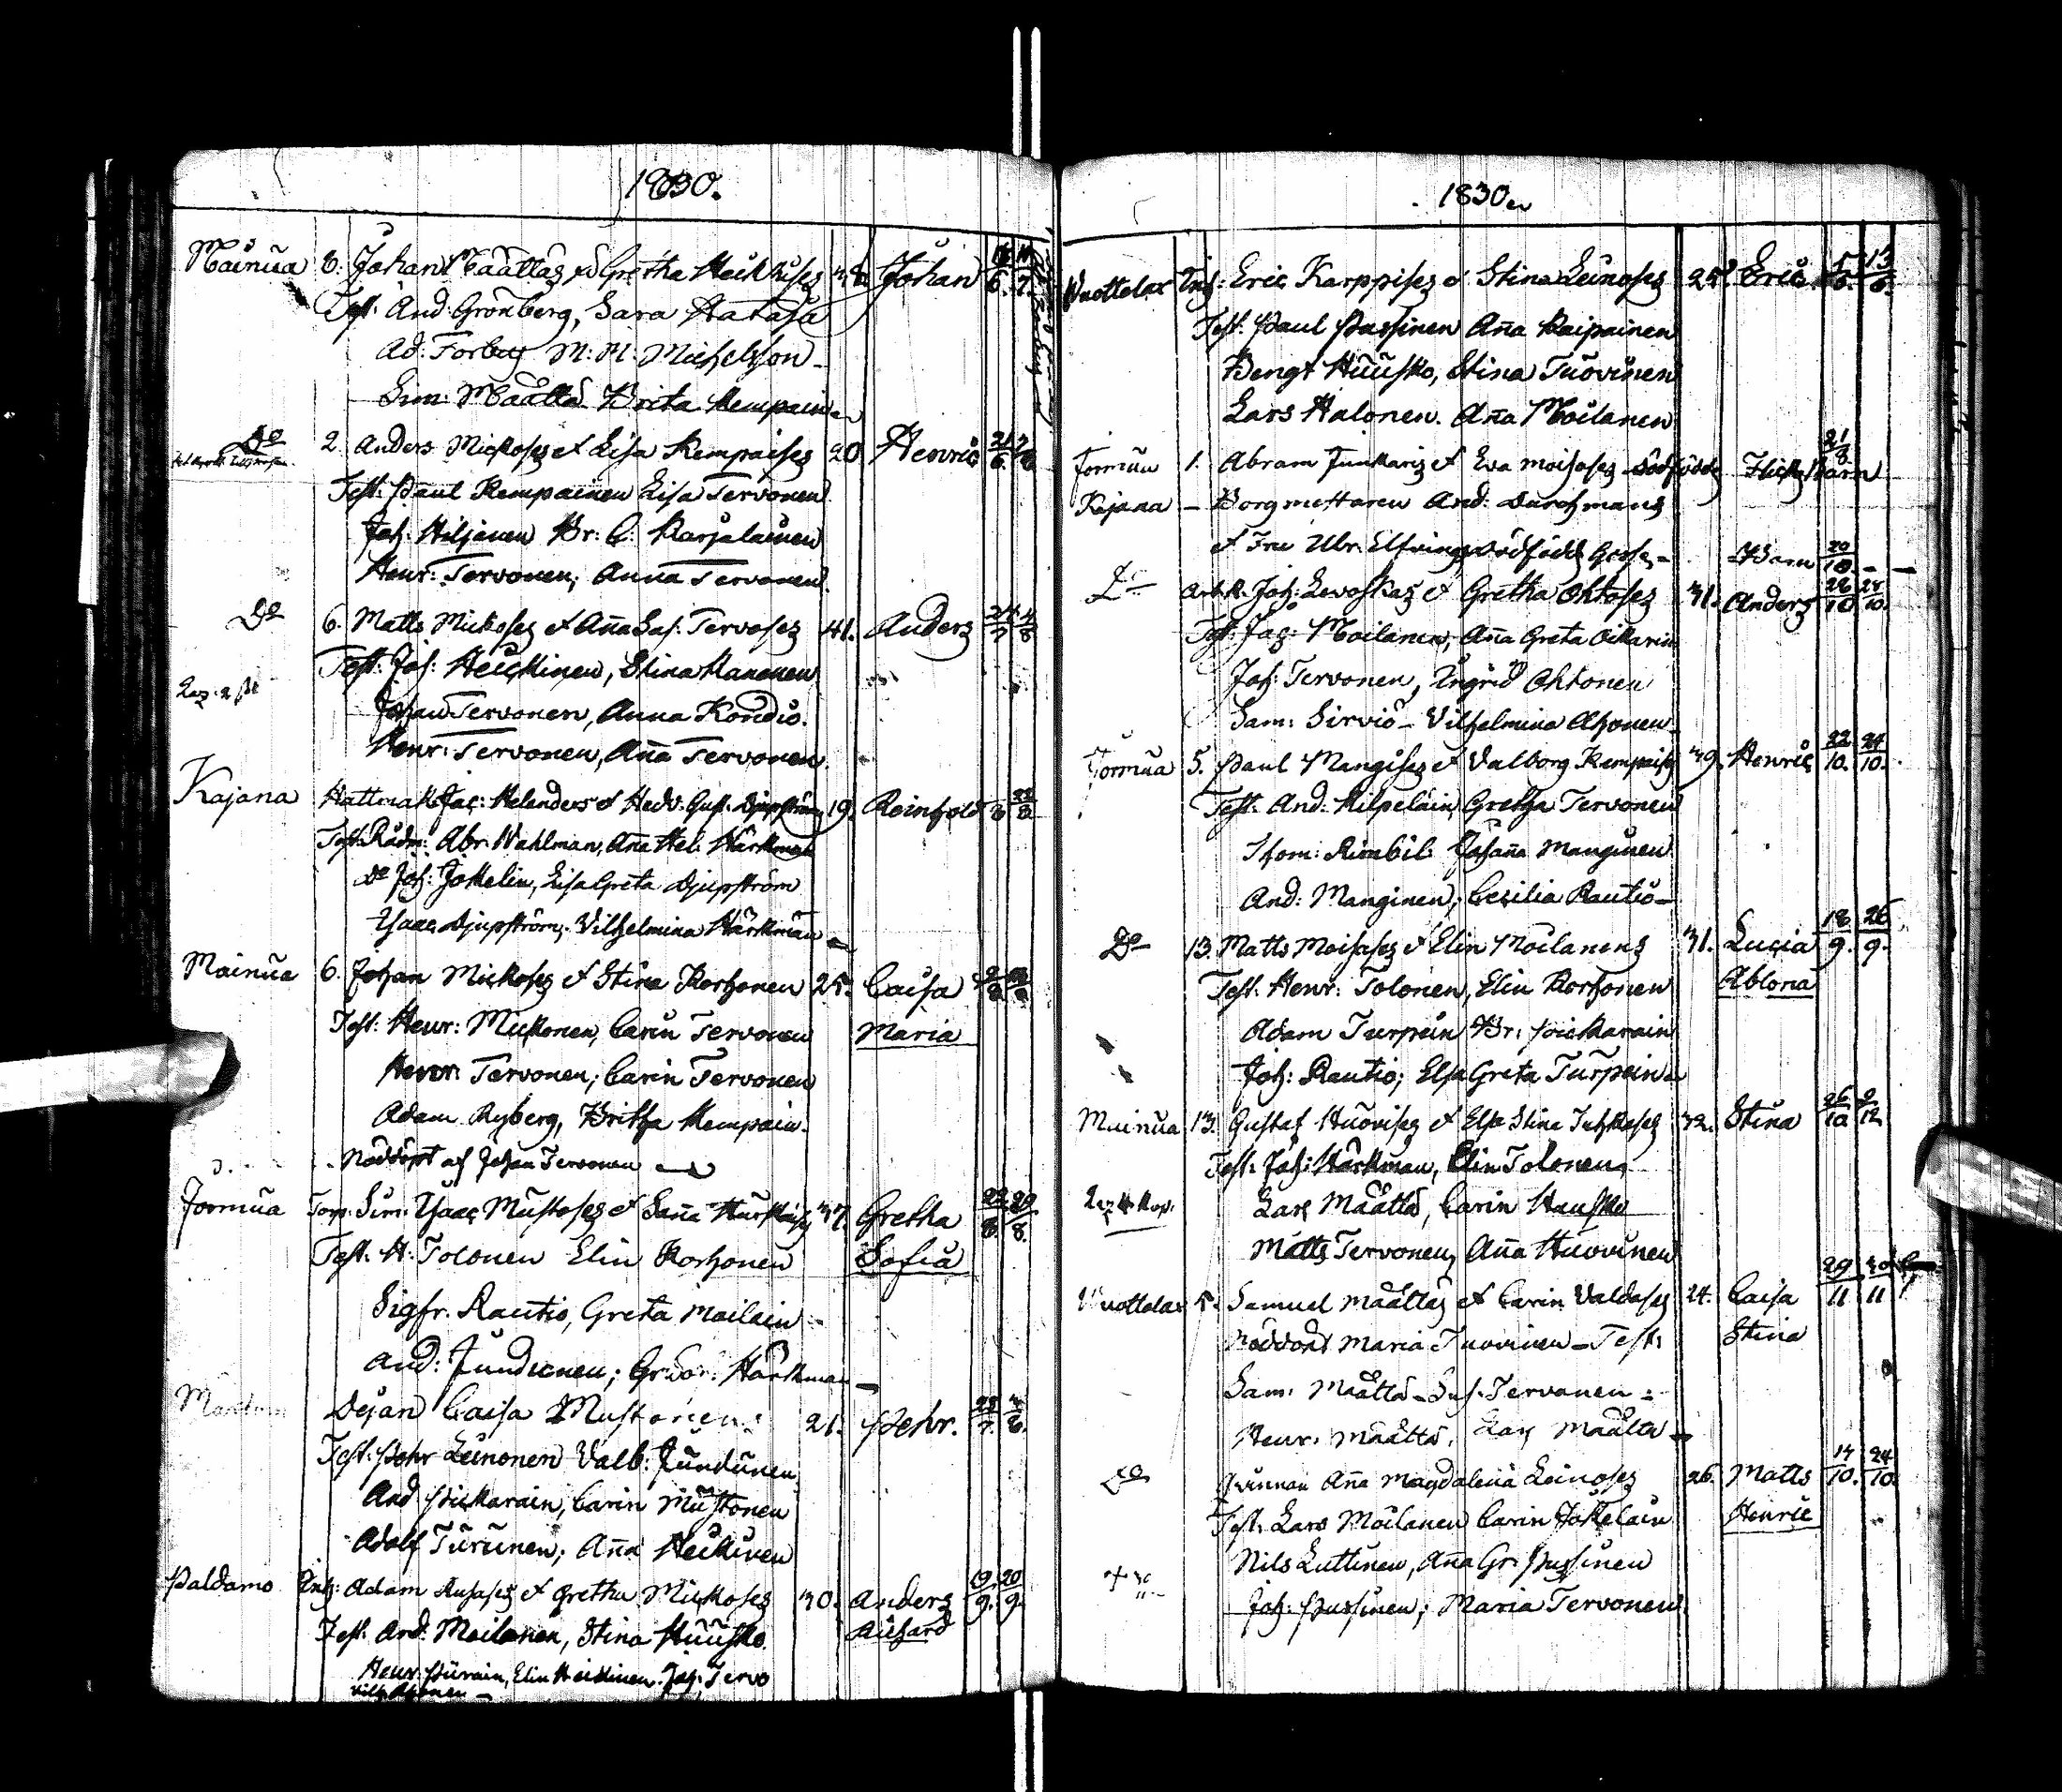 1830.
Mainua 6. Johan Määttäs et Gretha Heickises Johan
Test: And: Grönberg, Sara Hatasa
Ad: Forbus M: M: Michelsson
Sim: Määttä Brita Kempainen
Do 2. Anders Mickoses et Lisa Kempaises 20 Henric
Test: Paul Kempainen Lisa Tervonen
Joh: Hiljanen Br: C: Karjalainen
Henr: Tervonen; Anna Tervonen
Do 6. Matts Mickoses et Aña Sus: Tervoses 41. Anders
Test: Joh: Heickinen, Stina Kananen
Johan Tervonen, Anna Kondio.
Henr: Tervonen, Aña Tervonen
Kajana Hattmak. Jac: Helenders et Hedv: Gust. Djupström 19. Reinhold
Test: Rådm: Abr. Wahlman, Aña Hel: Härkman
Do Joh: Jokelin, Lisa Greta Djupström
Isaac Djupström, Vilhelmina Härkman
Mainua 6. Johan Mickoses et Stina Korhonen 25. Caisa 
Test: Henr: Mickonen, Carin Tervonen Maria
Henr: Tervonen; Carin Tervonen
Adam Ryberg, Britha Kempain.
Nöddöpt af Johan Tervonen
Jormua Torp. Sim: Isaac Mustoses et Saña Hurskaises 37. Gretha 22/8 29/8.
Test: H: Tolonen Elin Korhonen Sofia
Sigfr. Rautio, Greta Moilain
And: Jundunen; Gr. Dor: Härkman
Dejan Caisa Mustonen: 21. Pehr.
Test: Pehr Leinonen Valb: Jundunen
And Pickarain, Carin Mustonen
Adolf Turunen; Aña Heickinen
Paldamo Inh: Adam Rusases et Gretha Mickoses 30. Anders 19/9. 20/9.
Test. And. Moilanen, Stina Huusko. Richard
Henr: Pürain, Elin Heickinen. Joh: Tervo
Vilh. Ahonen
1830.
Wuottolax Inh: Eric Karppises et Stina Leinoses 25. Eric 5/6. 13/6.
Test: Paul Passinen Aña Kaipainen
Bengt Huusko, Stina Tuovinen
Lars Halonen. Aña Moilanen
Jormua 1. Abram Junkaris et Eva Moisases dödfödde Flick Barn 21/8
Kajana – Borgmestaren And: Durchmans
et Fru Ulr: Elfvings dödfödde Gosse – Barn 20/10. –
Do Arb.k. Joh: Levoskas et Gretha Ohtoses 31. Anders 26/10 28/10.
Test: Jac: Moilanen, Aña Greta Oikarin
Joh: Tervonen, Ingrid Ohtonen
Sam: Sirviö – Vilhelmina Ahonen
Jormua 5. Paul Mangises et Valborg Kempaises 39. Henric 22/10. 24/10.
Test: And: Kilpeläin, Gretha Tervonen
Thom: Johaña Manginen
And: Manginen; Cecilia Rautio
Do 13. Matts Moisases et Elin Moilanens 31. Lucia 18/9. 26/9.
Test: Henr: Tolonen, Elin Korhonen Ablona
Adam Turpein Br: Pickarain
Joh: Rautio; Elsa Greta Turpein
Mainua 13. Gustaf Huovises et Elsa Stina Juhkases 32. Stina 26/10 2/12
Test: Joh: Härkman, Elin Tolonen,
Lars Määttä, Carin Hausko
Matts Tervonen, Aña Huovinen
Wuottolax 5. Samuel Määttäs et Carin Valdases 24. Caisa 29/11 30/11
Nöddöpt Maria Tuovinen – Test: Stina
Sam: Määttä – Sus. Tervonen
Henr: Määttä, Lars Määttä
Do Qvinnan Aña Magdalena Leinoses 26. Matts 14/10. 24/10.
Test: Lars Moilanen Carin Jokelain Henric
Nils Luttinen, Aña Gr: Passinen
Joh: Passinen; Maria Tervonen